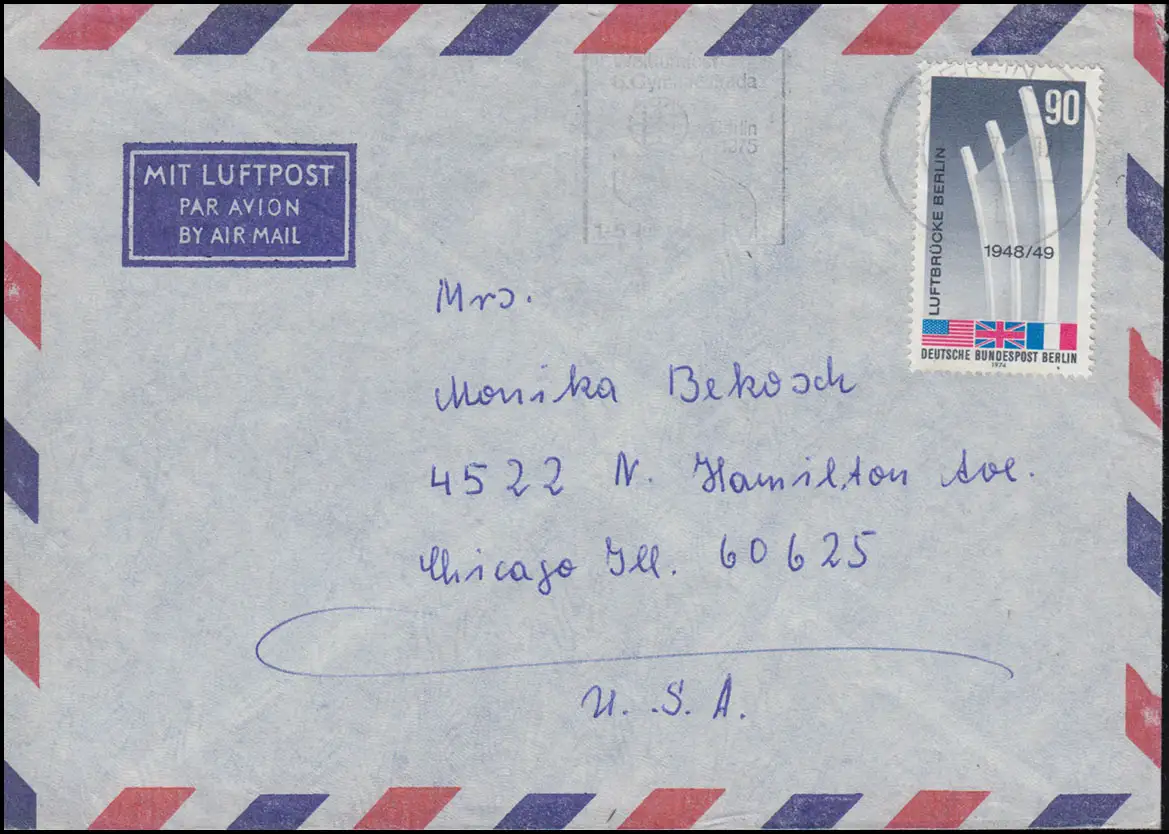 MIT LUFTPOST
PAR AVION
BY AIR MAIL
Berlin
1975
90
LUFTBRÜCKE BERLIN
1948/49
DEUTSCHE BUNDESPOST BERLIN
1974
Mrs.
Monika Bekosch
4522 N. Hamilton Ave.
Chicago Ill. 60625
U.S.A.